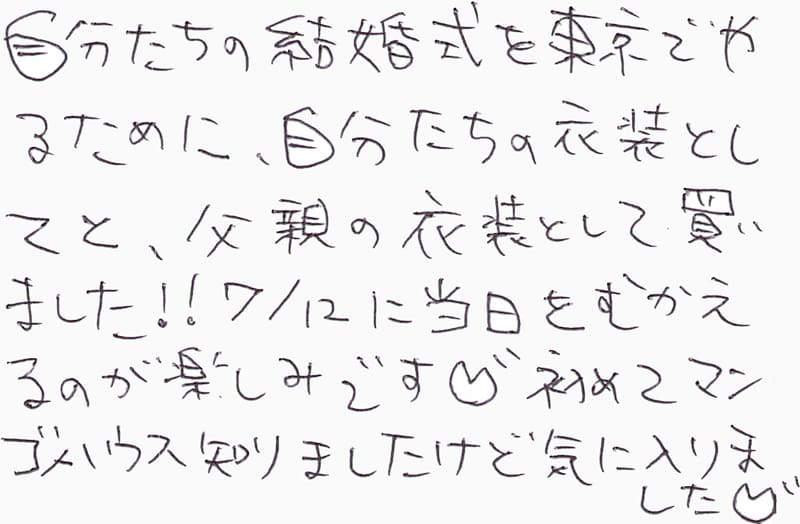 自分たちの結婚式を東京でや
るために、自分たちの衣装とし
てと、父親の衣装として買い
ました!!7/12に当日をむかえ
るのが楽しみです 初めてマン
ゴハウス知りましたけど気に入りま
した